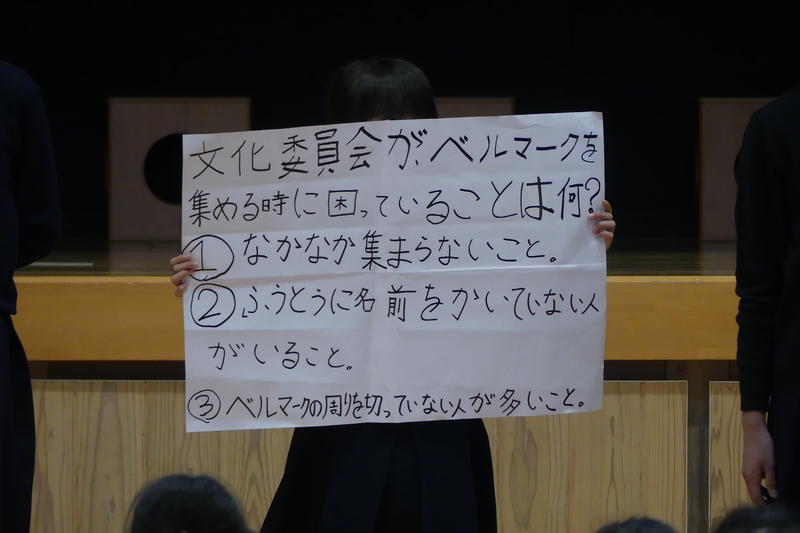 文化委員会が、ベルマークを
集める時に困っていることは何?
①なかなか集まらないこと。
②ふうとうに名前をかいていない人
がいること。
③ベルマークの周りを切っていない人が多いこと。